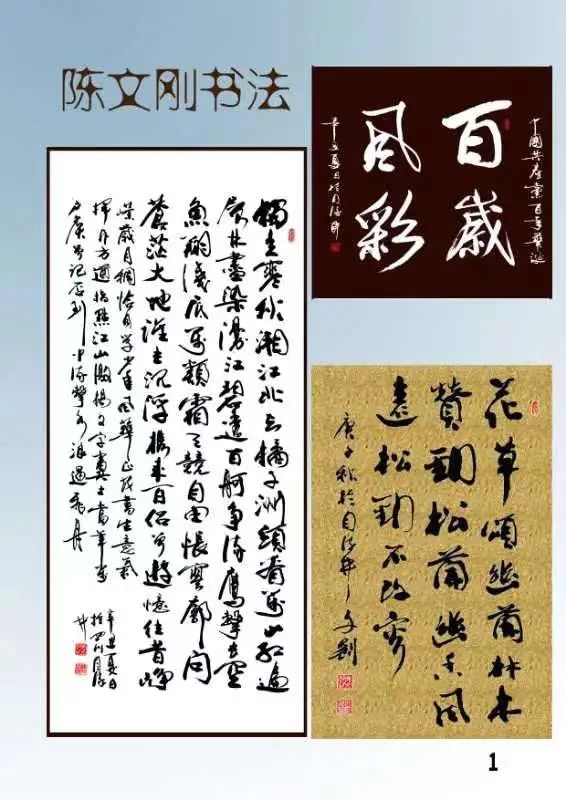 陈文刚书法
中國共産黨百年華誕
百歲
風彩
辛丑夏日於自流井
獨立寒秋湘江北去橘子洲頭看萬山紅遍
層林盡染漫江碧透百舸争流鷹擊長空
魚翔淺底萬類霜天競自由悵寥廓問
蒼茫大地誰主沉浮攜來百侣曾遊憶往昔崢
嶸歲月稠恰同學少年風華正茂書生意氣
揮斥方遒指點江山激揚文字糞土當年萬
户侯曾記否到中流擊水浪遏飛舟
辛丑夏日
於四川自流
井
花草頌幽蘭林木
贊勁松蘭幽香風
遠松勁不改容
庚子秋於自流井文剛
1